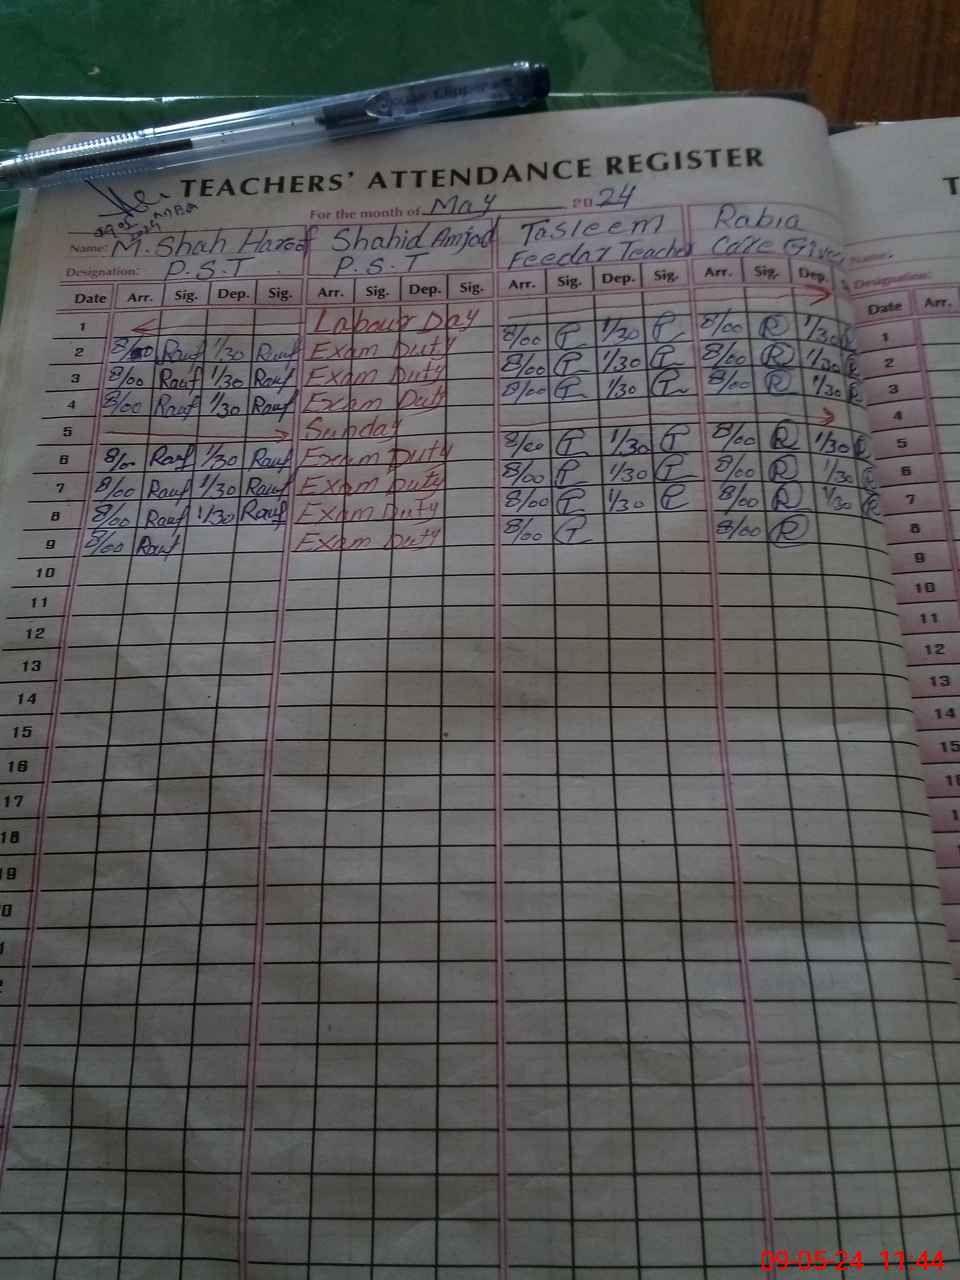 TEACHERS' ATTENDANCE REGISTER
For the month of May 2024
Name: M. Shah Haroof Shahid Amjad Tasleem Rabia
Designation: P.S.T P.S.T Feedar Teacher Care Giver
Date Arr. Sig. Dep. Sig. Arr. Sig. Dep. Sig. Arr. Sig. Dep. Sig. Arr. Sig. Dep.
1 Labour Day
2 8/00 Rauf 1/30 Rauf Exam Duty 8/00 T 1/30 T 8/00 R 1/30 R
3 8/00 Rauf 1/30 Rauf Exam Duty 8/00 T 1/30 T 8/00 R 1/30 R
4 8/00 Rauf 1/30 Rauf Exam Dut 8/00 T 1/30 T 8/00 R 1/30 R
5 Sunday
6 8/00 Rauf 1/30 Rauf Exam Duty 8/00 T 1/30 T 8/00 R 1/30 R
7 8/00 Rauf 1/30 Rauf Exam Duty 8/00 T 1/30 T 8/00 R 1/30 R
8 8/00 Rauf 1/30 Rauf Exam Duty 8/00 T 1/30 T 8/00 R 1/30 R
9 8/00 Rauf Exam Duty 8/00 T 8/00 R
10
11
12
13
14
15
16
17
18
19
T
Name:
Designation:
Date Arr.
1
2
3
4
5
6
7
8
9
10
11
12
13
14
15
09-05-24 11:44